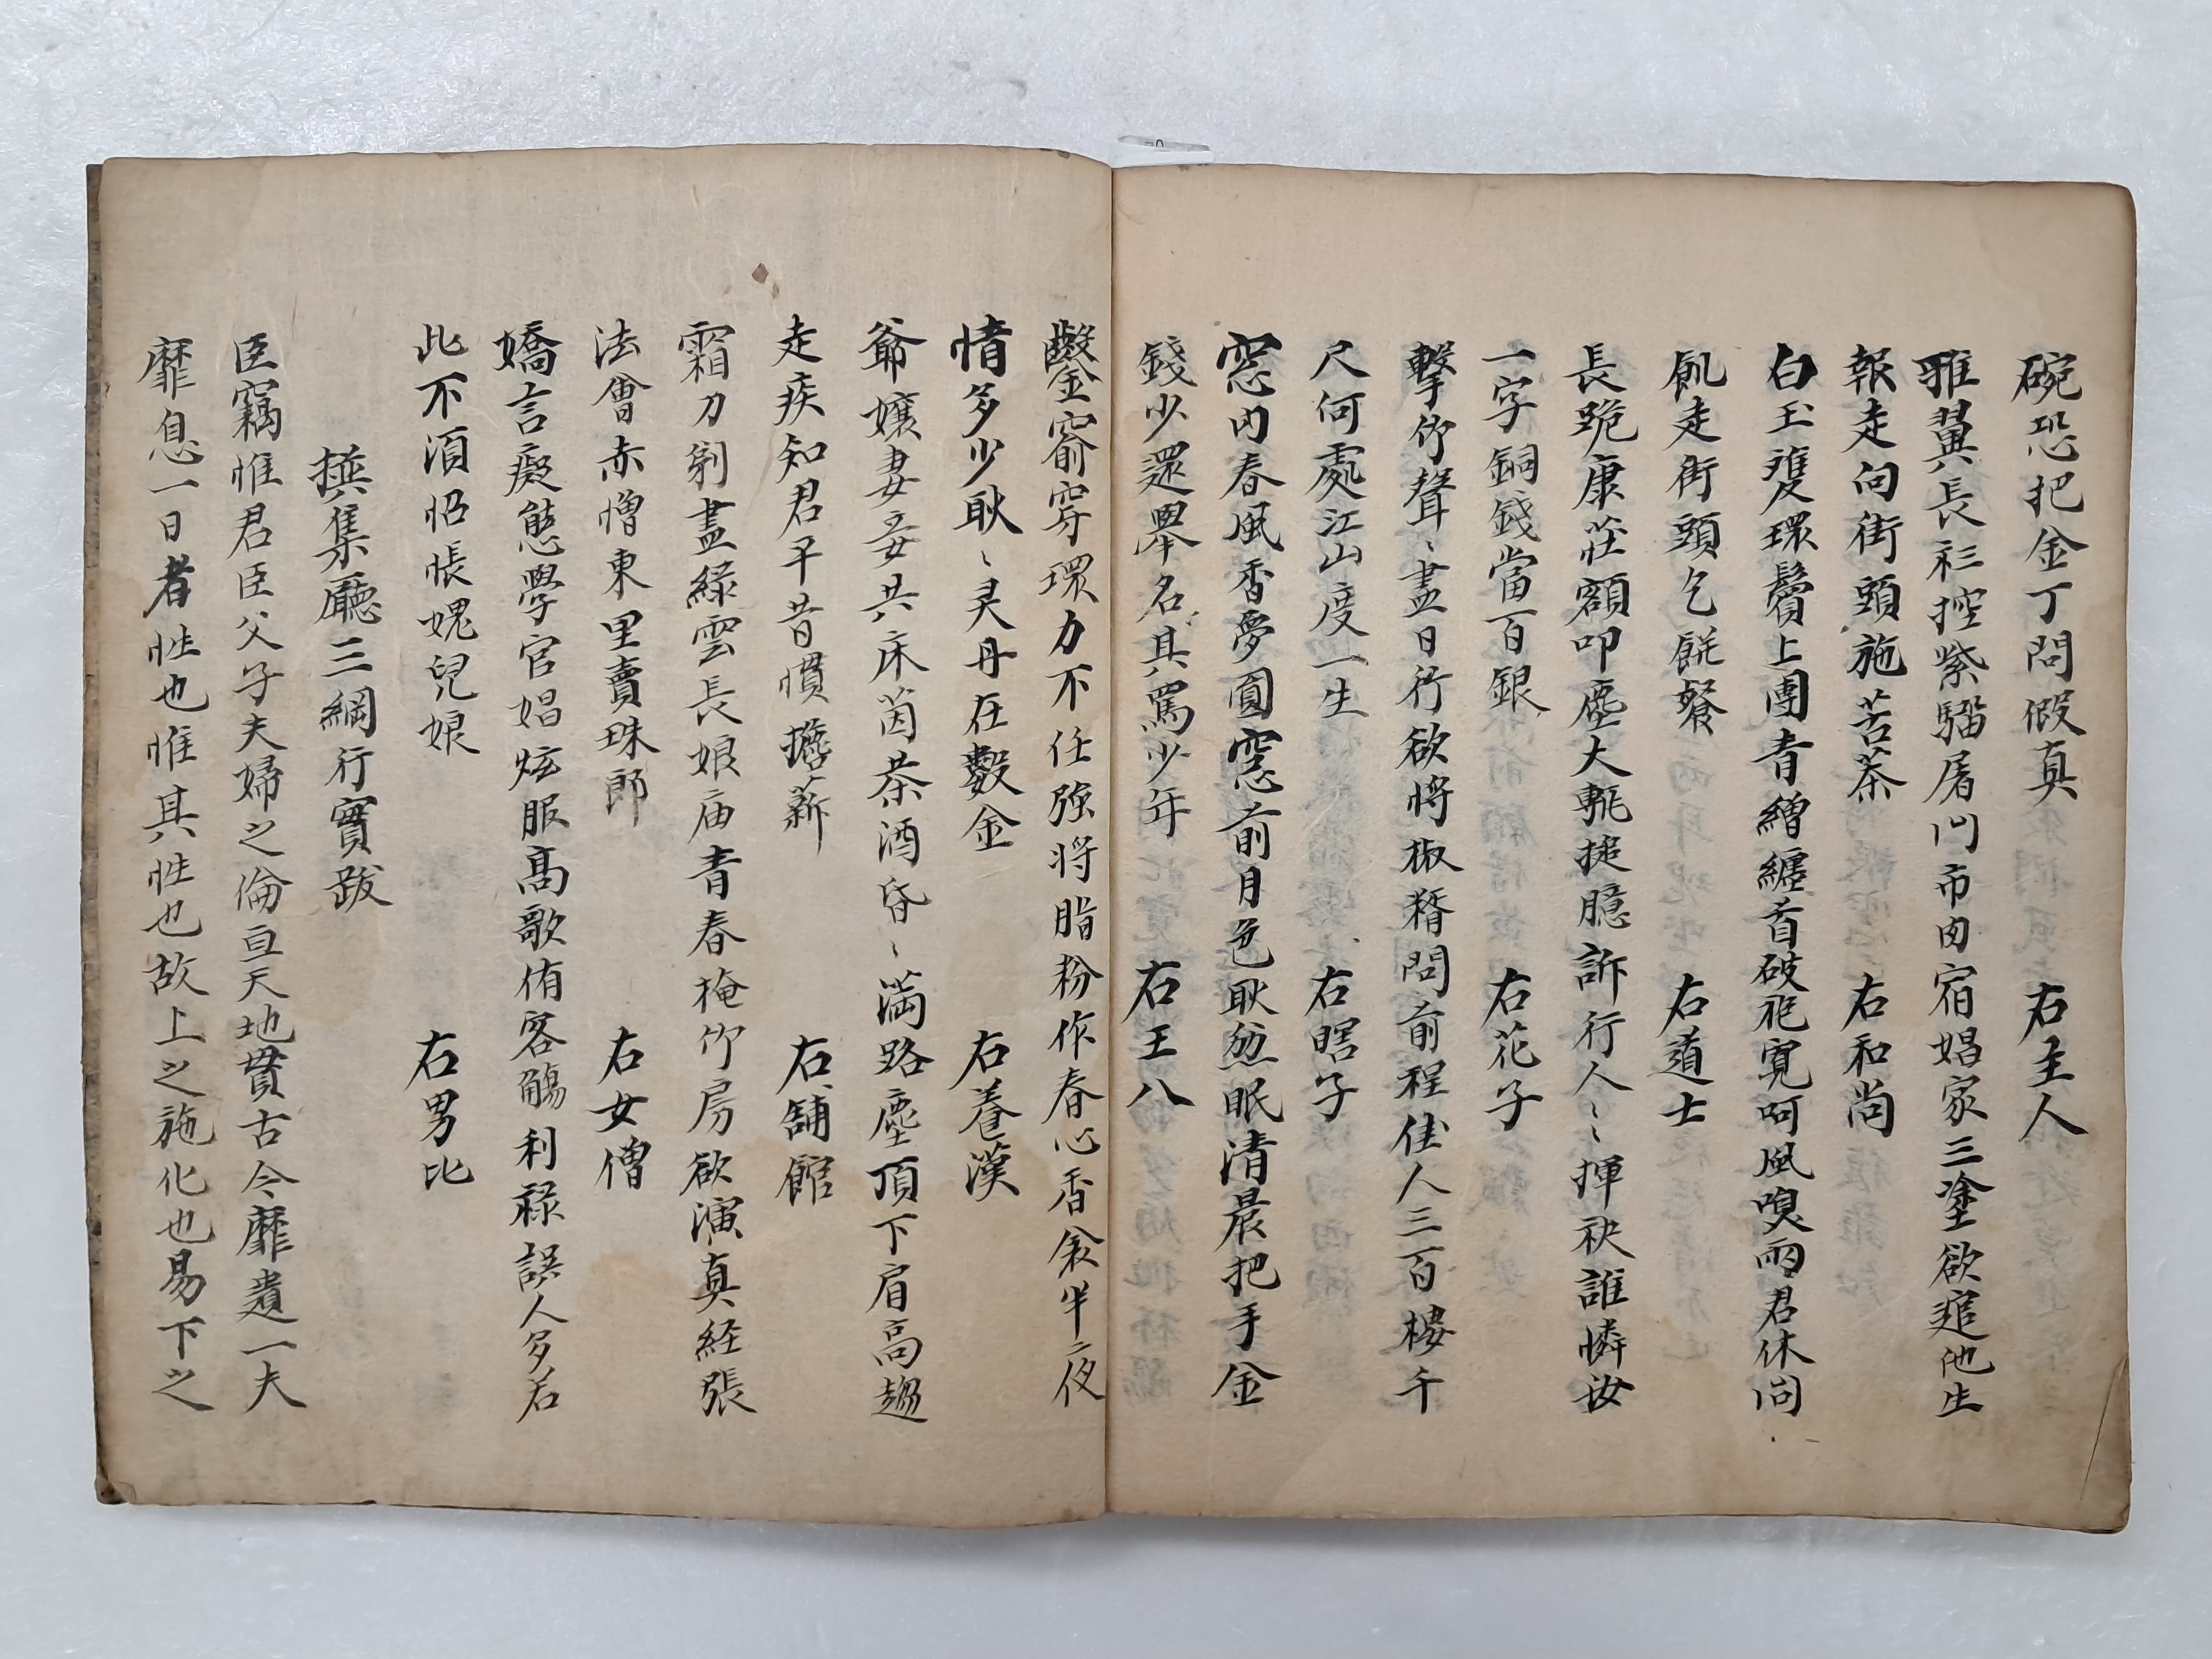 碗恐把金丁問假真 右主人
雅翼長衫控紫騮屠門市肉宿娼家三塗欲追他生
報走向街頭施苦茶 右和尚
白玉雙環鬢上團青繒纏首破袍寬呵風嗅雨君休問
飢走街頭乞餅餐 右道士
長跪康莊額叩塵大甎搥臆訴行人〻揮袂誰憐汝
一字銅錢當百銀 右花子
擊竹聲〻盡日行欲將椒糈問前程佳人三百樓千
尺何處江山度一生 右瞎子
窓內春風香夢圓窓前月色耿愁眠清晨把手金
錢少還舉名其罵少年 右王八
鑿金窬穿環力不任強將脂粉作春心香衾半夜
情多少耿〻灵丹在數金 右養漢
爺孃妻妾共床茵茶酒昏〻満路塵頂下肩高趨
走疾知君平昔慣擔薪 右舖館
霜刀剃盡綠雲長娘庙青春掩竹房欲演真経張
法會赤憎東里賣珠郎 右女僧
嬌言癡態學官娼炫服高歌侑客觴利祿誤人多若
此不須怊悵媿兒娘 右男比
撰集廳三綱行實跋
臣竊惟君臣父子夫婦之倫亘天地貫古今靡遺一夫
靡息一日者性也惟其性也故上之施化也易下之